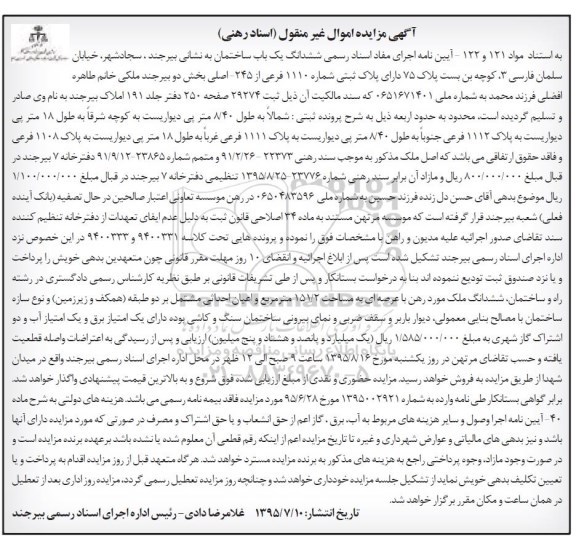 آگهی مزایده اموال غیر منقول (اسناد رهنی)
به استناد مواد ۱۲۱ و ۱۲۲ - آیین نامه اجرای مفاد اسناد رسمی ششدانگ یک باب ساختمان به نشانی بیرجند ، سجادشهر، خیابان
سلمان فارسی ۳، کوچه بن بست پلاک ۷۵ دارای پلاک ثبتی شماره ۱۱۱۰ فرعی از ۲۴۵- اصلی بخش دو بیرجند ملکی خانم طاهره
افضلی فرزند محمد به شماره ملی ۰۶۵۱۶۷۱۴۰۱ که سند مالکیت آن ذیل ثبت ۲۹۲۷۴ صفحه ۲۵۰ دفتر جلد ۱۹۱ املاک بیرجند به نام وی صادر
و تسلیم گردیده است، محدود به حدود اربعه ذیل به شرح پرونده ثبتی : شمالاً به طول ۸/۴۰ متر پی دیواریست به کوچه شرقاً به طول ۱۸ متر پی
دیواریست به پلاک ۱۱۱۲ فرعی جنوباً به طول ۸/۴۰ متر پی دیواریست به پلاک ۱۱۱۱ فرعی غرباً به طول ۱۸ متر پی دیواریست به پلاک ۱۱۰۸ فرعی
و فاقد حقوق ارتفاقی می باشد که اصل ملک مذکور به موجب سند رهنی ۲۲۳۷۳ - ۹۱/۲/۲۶ و متمم شماره ۲۳۸۶۵-۹۱/۹/۱۲ دفترخانه ۷ بیرجند در
قبال مبلغ ۸۰۰/۰۰۰/۰۰۰ ریال و مازاد آن برابر سند رهنی شماره ۲۳۷۷۶-۱۳۹۵/۸/۲۵ تنظیمی دفترخانه ۷ بیرجند در قبال مبلغ ۱/۱۰۰/۰۰۰/۰۰۰
ریال موضوع بدهی آقای حسن دل زنده فرزند حسین به شماره ملی ۰۶۵۰۴۸۳۵۹۶ در رهن موسسه تعاونی اعتبار صالحین در حال تصفیه (بانک آینده
فعلی) شعبه بیرجند قرار گرفته است که موسسه مرتهن مستند به ماده ۳۴ اصلاحی قانون ثبت به دلیل عدم ایفای تعهدات از دفترخانه تنظیم کننده
سند تقاضای صدور اجرائیه علیه مدیون و راهن با مشخصات فوق را نموده و پرونده هایی تحت کلاسه ۹۴۰۰۳۳۱ و ۹۴۰۰۳۳۳ در این خصوص نزد
اداره اجرای اسناد رسمی بیرجند تشکیل شده است پس از ابلاغ اجرائیه و انقضای ۱۰ روز مهلت مقرر قانونی چون متعهدین بدهی خویش را پرداخت
و یا نزد صندوق ثبت تودیع ننموده اند بنا به درخواست بستانکار و پس از طی تشریفات قانونی بر طبق نظریه کارشناس رسمی دادگستری در رشته
راه و ساختمان، ششدانگ ملک مورد رهن با عرصه ای به مساحت ۱۵۷/۲ مترمربع و اعیان احداثی مشتمل بر دو طبقه (همکف و زیرزمین) و نوع سازه
ساختمان با مصالح بنایی معمولی، دیوار باربر و سقف ضربی و نمای بیرونی ساختمان سنگ و کاشی بوده دارای یک امتیاز برق و یک امتیاز آب و دو
اشتراک گاز شهری به مبلغ ۱/۵۸۵/۰۰۰/۰۰۰ ریال (یک میلیارد و پانصد و هشتاد و پنج میلیون) ارزیابی و پس از رسیدگی به اعتراضات واصله قطعیت
یافته و حسب تقاضای مرتهن در روز یکشنبه مورخ ۱۳۹۵/۸/۱۶ از ساعت ۹ صبح الی ۱۲ ظهر در محل اداره اجرای اسناد رسمی بیرجند واقع در میدان
شهدا از طریق مزایده به فروش خواهد رسید. مزایده حضوری و نقدی از مبلغ ارزیابی شده فوق شروع و به بالاترین قیمت پیشنهادی واگذار خواهد شد.
برابر گواهی بستانکار طی نامه وارده به شماره ۱۳۹۵۰۰۲۹۲۱ مورخ ۹۵/۶/۲۸ مورد مزایده فاقد بیمه نامه رسمی می باشد. هزینه های دولتی به شرح ماده
۴۰- آیین نامه اجرا وصول و سایر هزینه های مربوط به آب، برق ، گاز اعم از حق انشعاب و یا حق اشتراک و مصرف در صورتی که مورد مزایده دارای آنها
باشد و نیز بدهی های مالیاتی و عوارض شهرداری و غیره تا تاریخ مزایده اعم از اینکه رقم قطعی آن معلوم شده یا نشده باشد برعهده برنده مزایده است و
در صورت وجود مازاد، وجوه پرداختی راجع به هزینه های مذکور به برنده مزایده مسترد خواهد شد. هر گاه متعهد قبل از روز مزایده اقدام به پرداخت و یا
تعیین تکلیف بدهی خویش نماید از تشکیل جلسه مزایده خودداری خواهد شد و چنانچه روز مزایده تعطیل رسمی گردد، مزایده روز اداری بعد از تعطیل
در همان ساعت و مکان مقرر برگزار خواهد شد.
تاریخ انتشار: ۱۳۹۵/۷/۱۰ غلامرضا دادی - رئیس اداره اجرای اسناد رسمی بیرجند